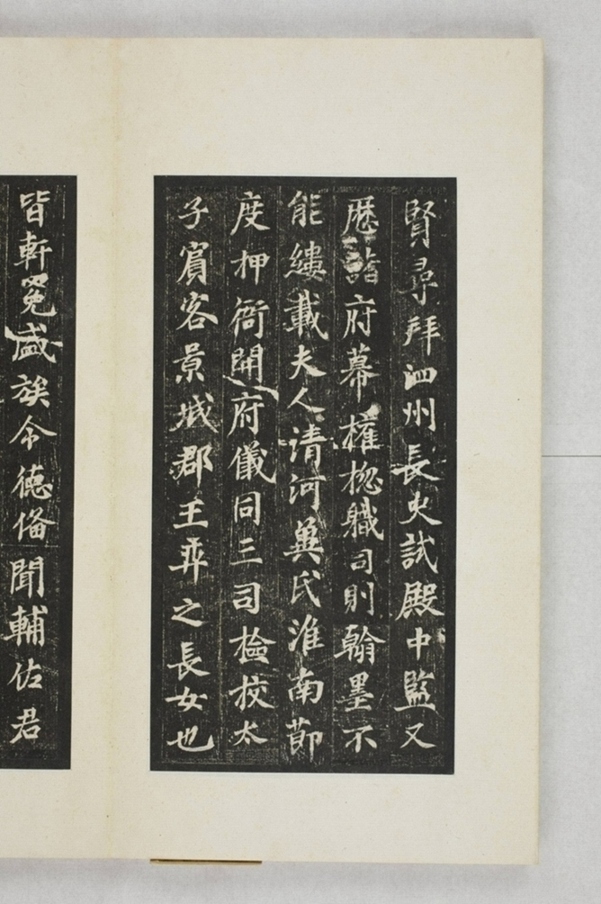 賢尋拜泗州長史試殿中監又
歷諸府幕搉揔軄司則翰墨不
能縷載夫人清河兾氏淮南節
度押衙開府儀同三司檢挍太
子賓客景城郡王弈之長女也
皆軒冕盛族令德俻聞輔佐君